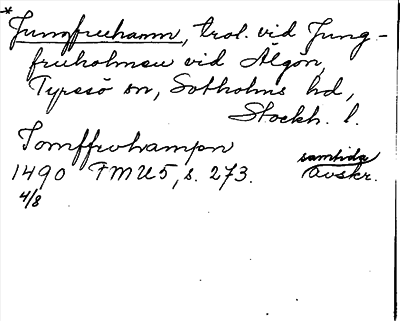 * Jungfruhamn, trol. vid Jung-
fruholmen vid Älgön,
Tyresö sn, Sotholms hd,
Stockh. l.
Jomffrvhampn
1490 FMU5, s. 273. samtida avskr.
4/8